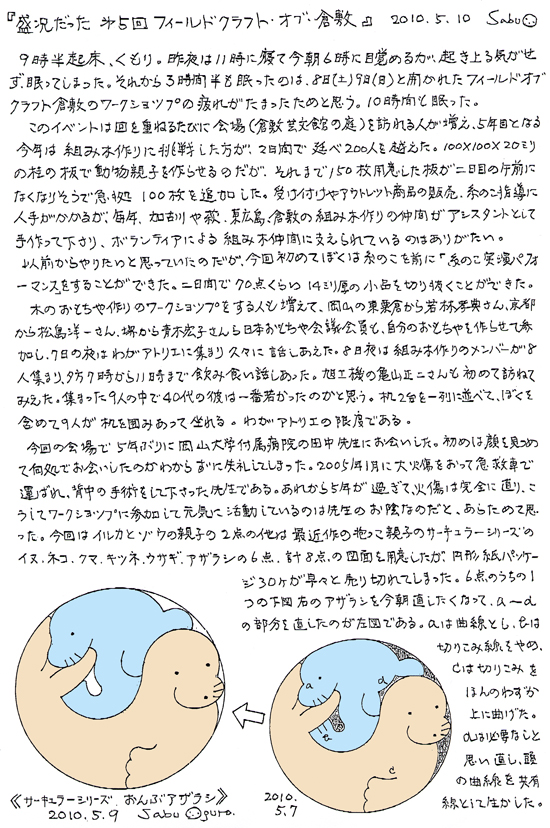 『盛況だった 第5回フィールドクラフト・オブ・倉敷』 2010.5.10 Sabu
9時半起床、くもり。昨夜は11時に寝て今朝6時に目覚めるが、起き上る気がせ
ず、眠ってしまった。それから3時間半も眠ったのは、8日(土)9日(日)と開かれたフィールドオブ
クラフト倉敷のワークショップの疲れがたまったためと思う。10時間も眠った。
このイベントは回を重ねるたびに会場(倉敷芸文館の庭)を訪れる人が増え、5年目となる
今年は組み木作りに挑戦した方が、2日間で延べ200人を越えた。100×100×20ミリ
の桂の板で動物親子を作らせるのだが、それまで150枚用意した板が二日目の午前に
なくなりそうで急拠100枚を追加した。受け付けやアウトレット商品の販売、糸のこ指導に
人手がかかるが、毎年、加古川や萩、東広島、倉敷の組み木作りの仲間がアシスタントとして
手作って下さり、ボランティアによる組み木仲間に支えられているのはありがたい。
以前からやりたいと思っていたのだが、今回初めてぼくは糸のこを前に「糸のこ実演パフォ
ーマンス」をすることができた。二日間で70点くらい14ミリ厚の小品を切り抜くことができた。
木のおもちゃ作りのワークショップをする人も増えて、岡山の東粟倉から若林孝典さん、京都
から松島洋一さん、堺から青木宏子さんら日本おもちゃ会議会員も、自分のおもちゃを作らせて参
加し、7日の夜はわがアトリエに集まり久々に話しあえた。8日夜は組み木作りのメンバーが8
人集まり、夕方7時から11時まで飲み食い話しあった。旭工機の亀山正二さんも初めて訪ねて
みえた。集まった9人の中で40代の彼は一番若かったのかと思う。机2台を一列に並べて、ぼくを
含めて9人が机を囲みあって坐れる。わがアトリエの限度である。
今回の会場で5年ぶりに岡山大学付属病院の田中先生にお会いした。初めは顔を見つめ
て何処でお会いしたのかわからずに失礼してしまった。2005年1月に大火傷をおって急救車で
運ばれ、背中の手術をして下さった先生である。あれから5年が過ぎて、火傷は完全に直り、こ
うしてワークショップに参加して元気に活動しているのは先生のお陰なのだと、あらためて思
った。今回はイルカとゾウの親子の2点の他は最近作の抱っこ親子のサーキュラーシリーズの
イヌ、ネコ、クマ、キツネ、ウサギ、アザラシの6点、計8点の図面を用意したが、円形紙パッケー
ジ30ヶが早々と売り切れてしまった。6点のうちの1
つの下図右のアザラシを今朝直したくなって、a〜d
の部分を直したのが左図である。aは曲線とし、bは
切りこみ線をやめ、
cは切りこみを
ほんのわずか
上に曲げた。
dは必要なしと
思い直し、頭
の曲線を共有
線として生かした。
a
b
c
d
《サーキュラーシリーズ おんぶアザラシ》
2010.5.9 Sabu Oguro.
2010.
5.7